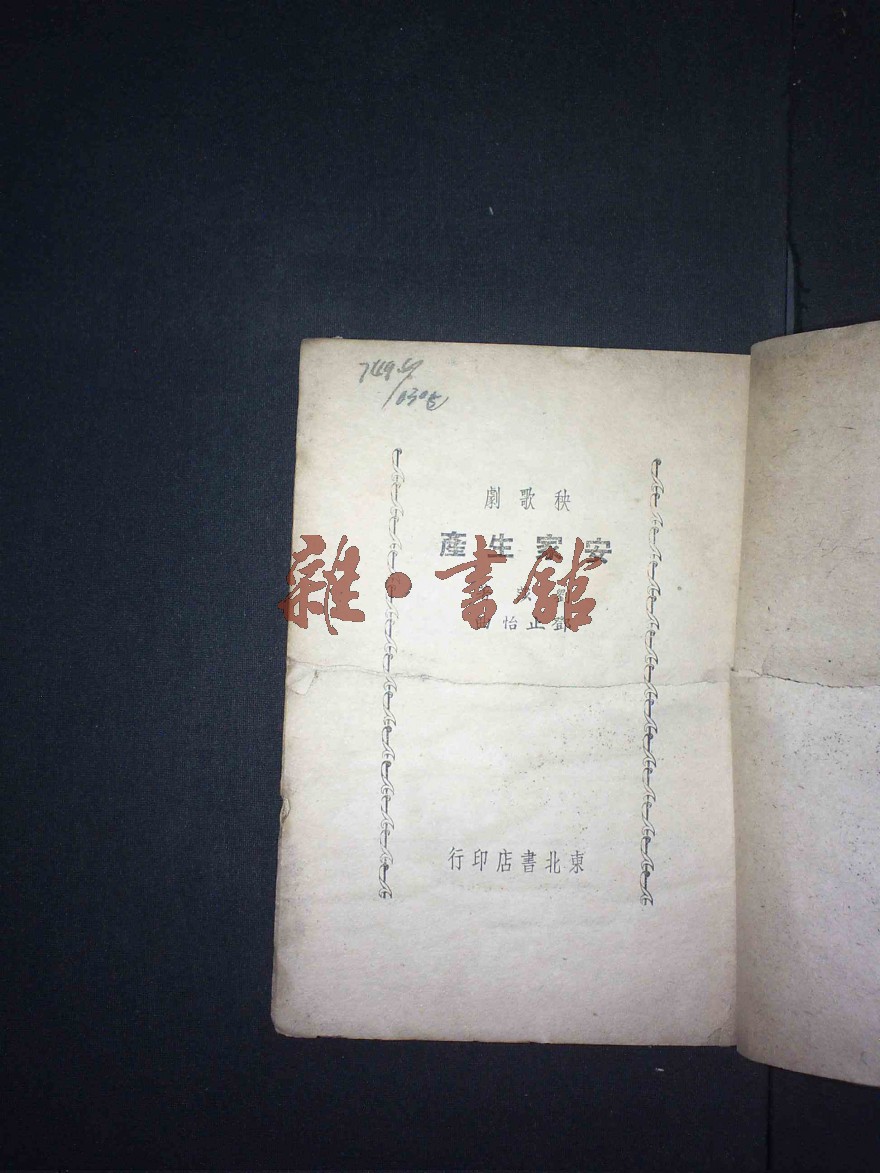 749.4
/030
秧歌劇
安家生產
鄧止怡曲
東北書店印行
雜·書館